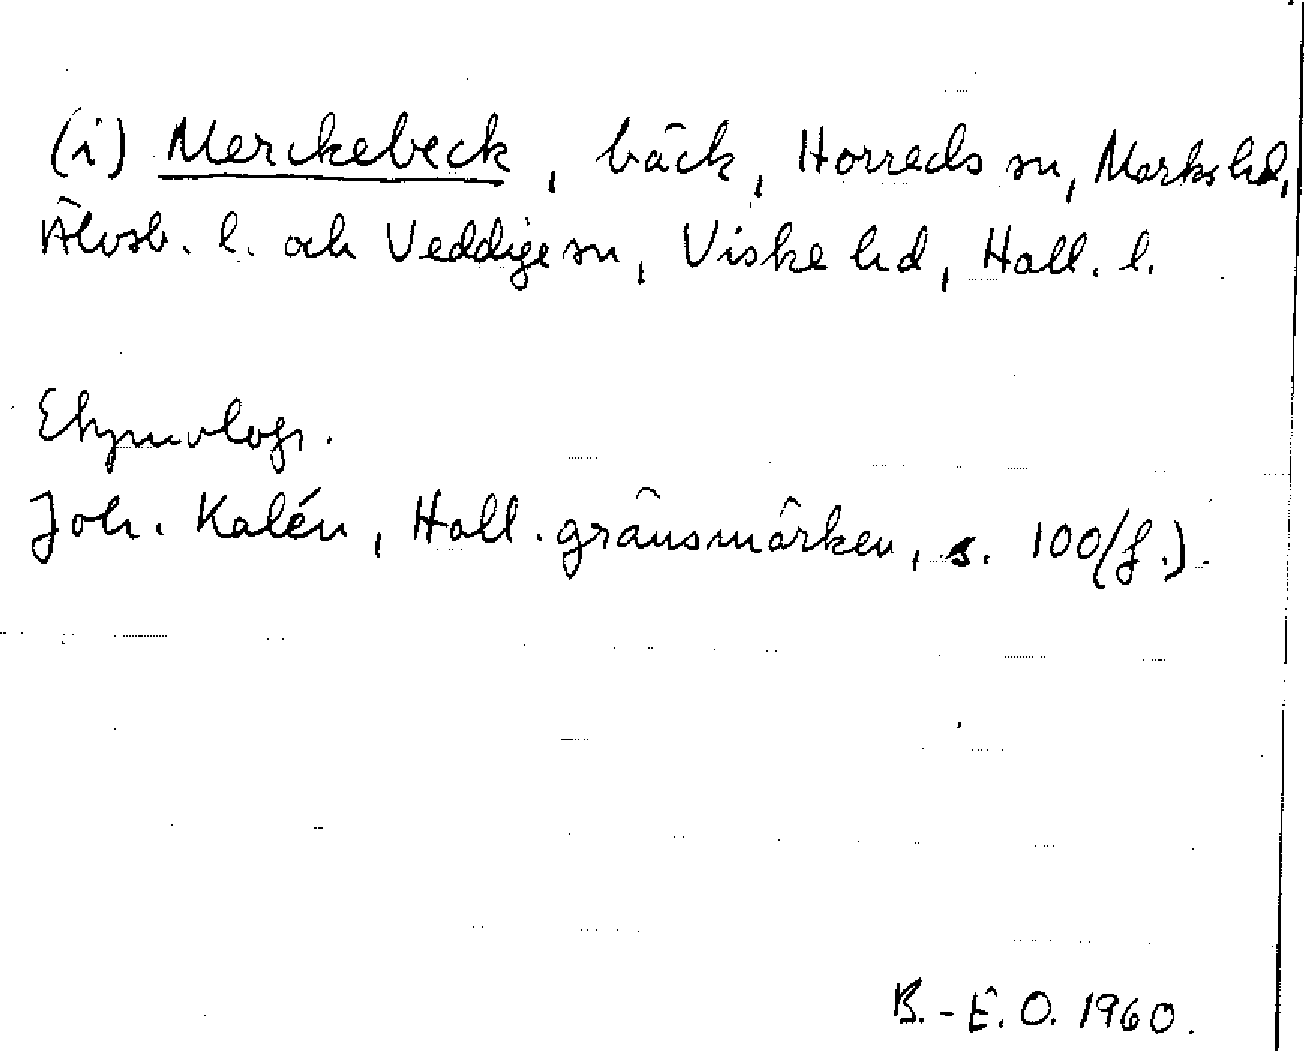 (i) Merckebeck, bäck, Horreds sn, Marks hd,
Älvsb. l. och Veddige sn, Viske hd, Hall. l.
Etymologi.
Joh. Kalén, Hall. gränsmärken, s. 100(f.).
B.-E.O. 1960.